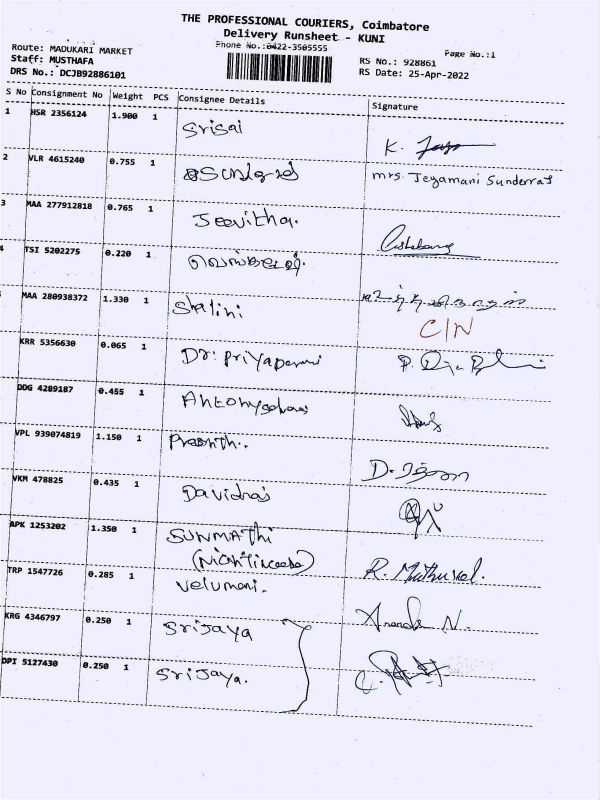 THE PROFESSIONAL COURIERS, Coimbatore
Delivery Runsheet - KUNI
Phone No.:0422-3505555
Page No.:1
Route: MADUKARI MARKET
Staff: MUSTHAFA
DRS No.: DCJB92886101
RS No.: 928861
RS Date: 25-Apr-2022
S No Consignment No Weight PCS Consignee Details Signature
1 HSR 2356124 1.900 1 Srisai K.
2 VLR 4615240 0.755 1 mrs. Jeyamani Sunderraj
3 MAA 277912818 0.765 1 Jeevitha.
4 TSI 5202275 0.220 1
MAA 280938372 1.330 1 Shalini
C/N
KRR 5356630 0.065 1 Dr. Priya
DDG 4289187 0.455 1
VPL 939074819 1.150 1 Prasnth..
VKM 478825 0.435 1 Davidraj
APK 1253202 1.350 1 SUNMATHI
R. Muthuvel.
TRP 1547726 0.285 1 Velumani.
KRG 4346797 0.250 1 Srijaya Ananda N.
DPI 5127430 0.250 1 Srijaya.